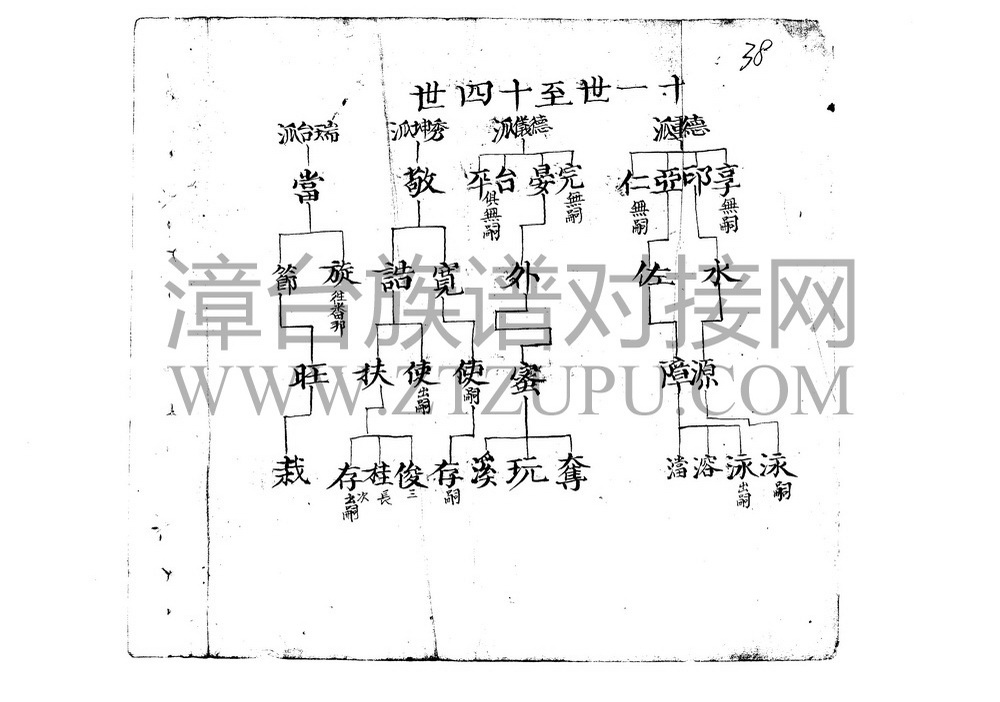 38
十一世至十四世
德重派
德儀派
秀坤派
瑞台派
享 無嗣
邱
亞
仁 無嗣
完 無嗣
晏
台
平
俱無嗣
敬
當
水
佐
外
寬
誥
旋 往番邦
節
源
障
蜜
使 嗣
使 出嗣
扶
旺
泳 嗣
泳 出嗣
溶
澢
奪
玩
溪
存 嗣
俊 三
桂 長
存 次出嗣
栽
漳台族谱对接网
WWW.ZTZUPU.COM